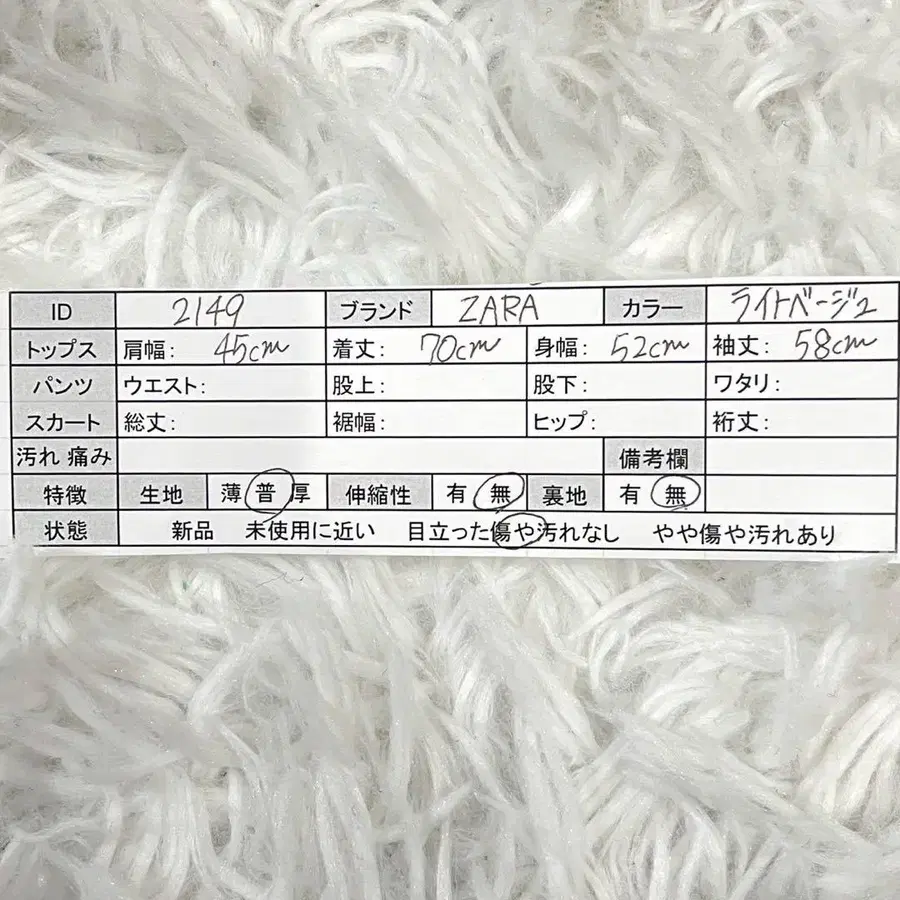 ID 2149 ブランド ZARA カラー ライトベージュ
トップス 肩幅: 45cm 着丈: 70cm 身幅: 52cm 袖丈: 58cm
パンツ ウエスト: 股上: 股下: ワタリ:
スカート 総丈: 裾幅: ヒップ: 裄丈:
汚れ 痛み 備考欄
特徴 生地 薄 普 厚 伸縮性 有 無 裏地 有 無
状態 新品 未使用に近い 目立った傷や汚れなし やや傷や汚れあり